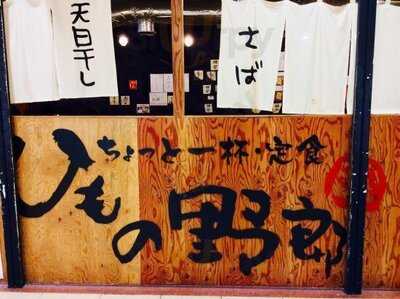 天日干し
さば
ちょっと一杯・定食
ひもの野郎